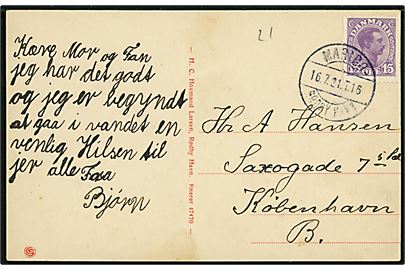 21
DANMARK
15
MARIBO
16.7.21.1.16
RØDBY HAVN
Kære Mor og Far
jeg har det godt
og jeg er begyndt
at gaa i vandet en
venlig Hilsen til
jer alle Faa
Bjørn
H. C. Hovmand Larsen, Rødby Havn. Eneret 47470
Hr A Hansen
Saxogade 7 5 Sal
København
B.